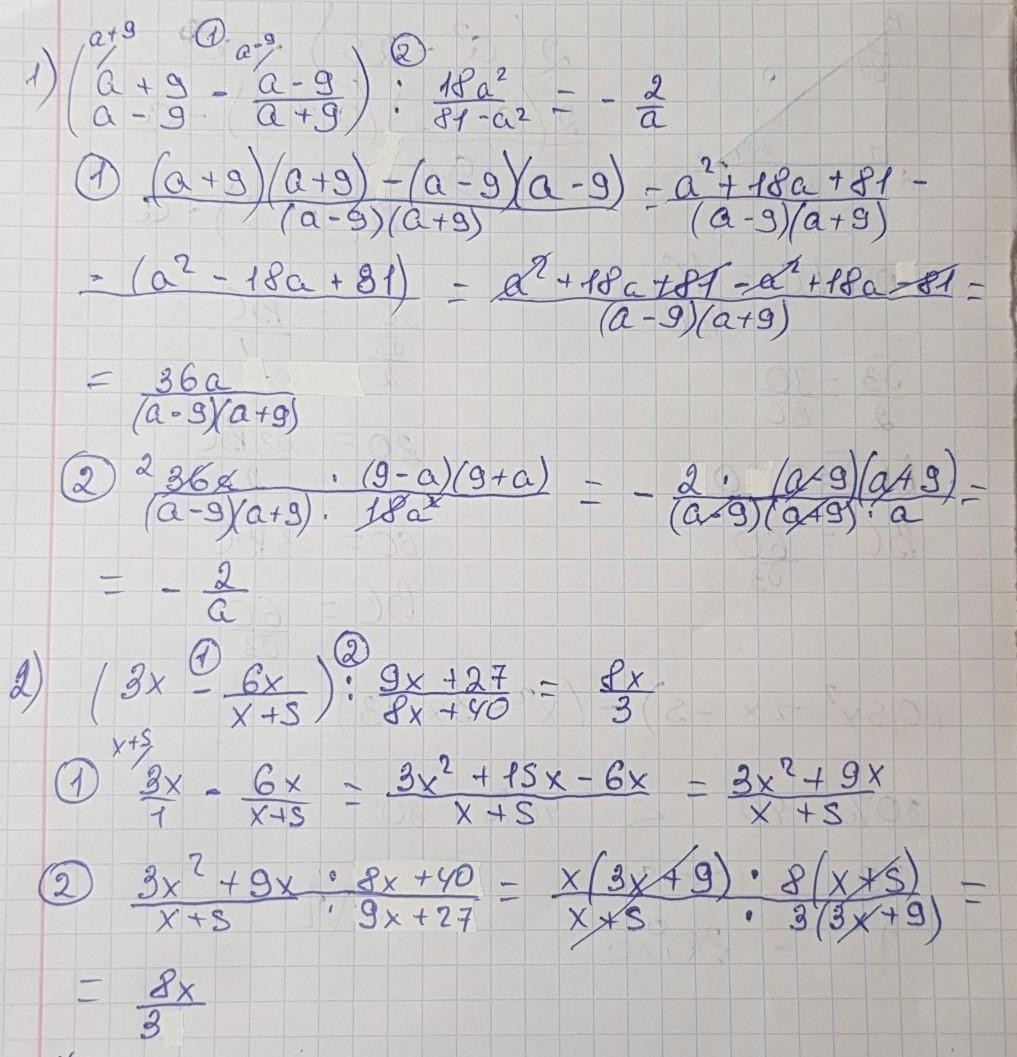 1) ((a + 9)/(a - 9) - (a - 9)/(a + 9)) : 18a²/(81 - a²) = - 2/a
a+9 ① a-9 ②
① ((a + 9)(a + 9) - (a - 9)(a - 9))/((a - 9)(a + 9)) = (a² + 18a + 81 -)/((a - 9)(a + 9))
- (a² - 18a + 81) = (a² + 18a + 81 - a² + 18a - 81)/((a - 9)(a + 9)) =
= 36a/((a - 9)(a + 9))
② 2 36a · (9 - a)(9 + a)/((a - 9)(a + 9) · 18a²) = - 2 · (a - 9)(a + 9)/((a - 9)(a + 9) · a) =
= - 2/a
2) (3x ① - 6x/(x + 5)) ② : (9x + 27)/(8x + 40) = 8x/3
x+5
① 3x/1 - 6x/(x+5) = (3x² + 15x - 6x)/(x + 5) = (3x² + 9x)/(x + 5)
② (3x² + 9x)/(x + 5) : (8x + 40)/(9x + 27) = x(3x + 9) · 8(x + 5)/(x + 5 · 3(3x + 9)) =
= 8x/3